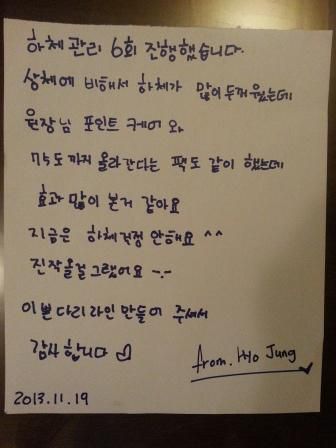 하체관리 6회 진행했습니다.
상체에 비해서 하체가 많이 두꺼웠는데
원장님 포인트 케어 와
75도까지 올라간다는 팩도 같이 했는데
효과 많이 본거 같아요
지금은 하체걱정 안해요 ^^
진작올걸 그랬어요 -.-
이쁜다리라인 만들어 주셔서
감사합니다 ♡
from. Hyo Jung
2013.11.19